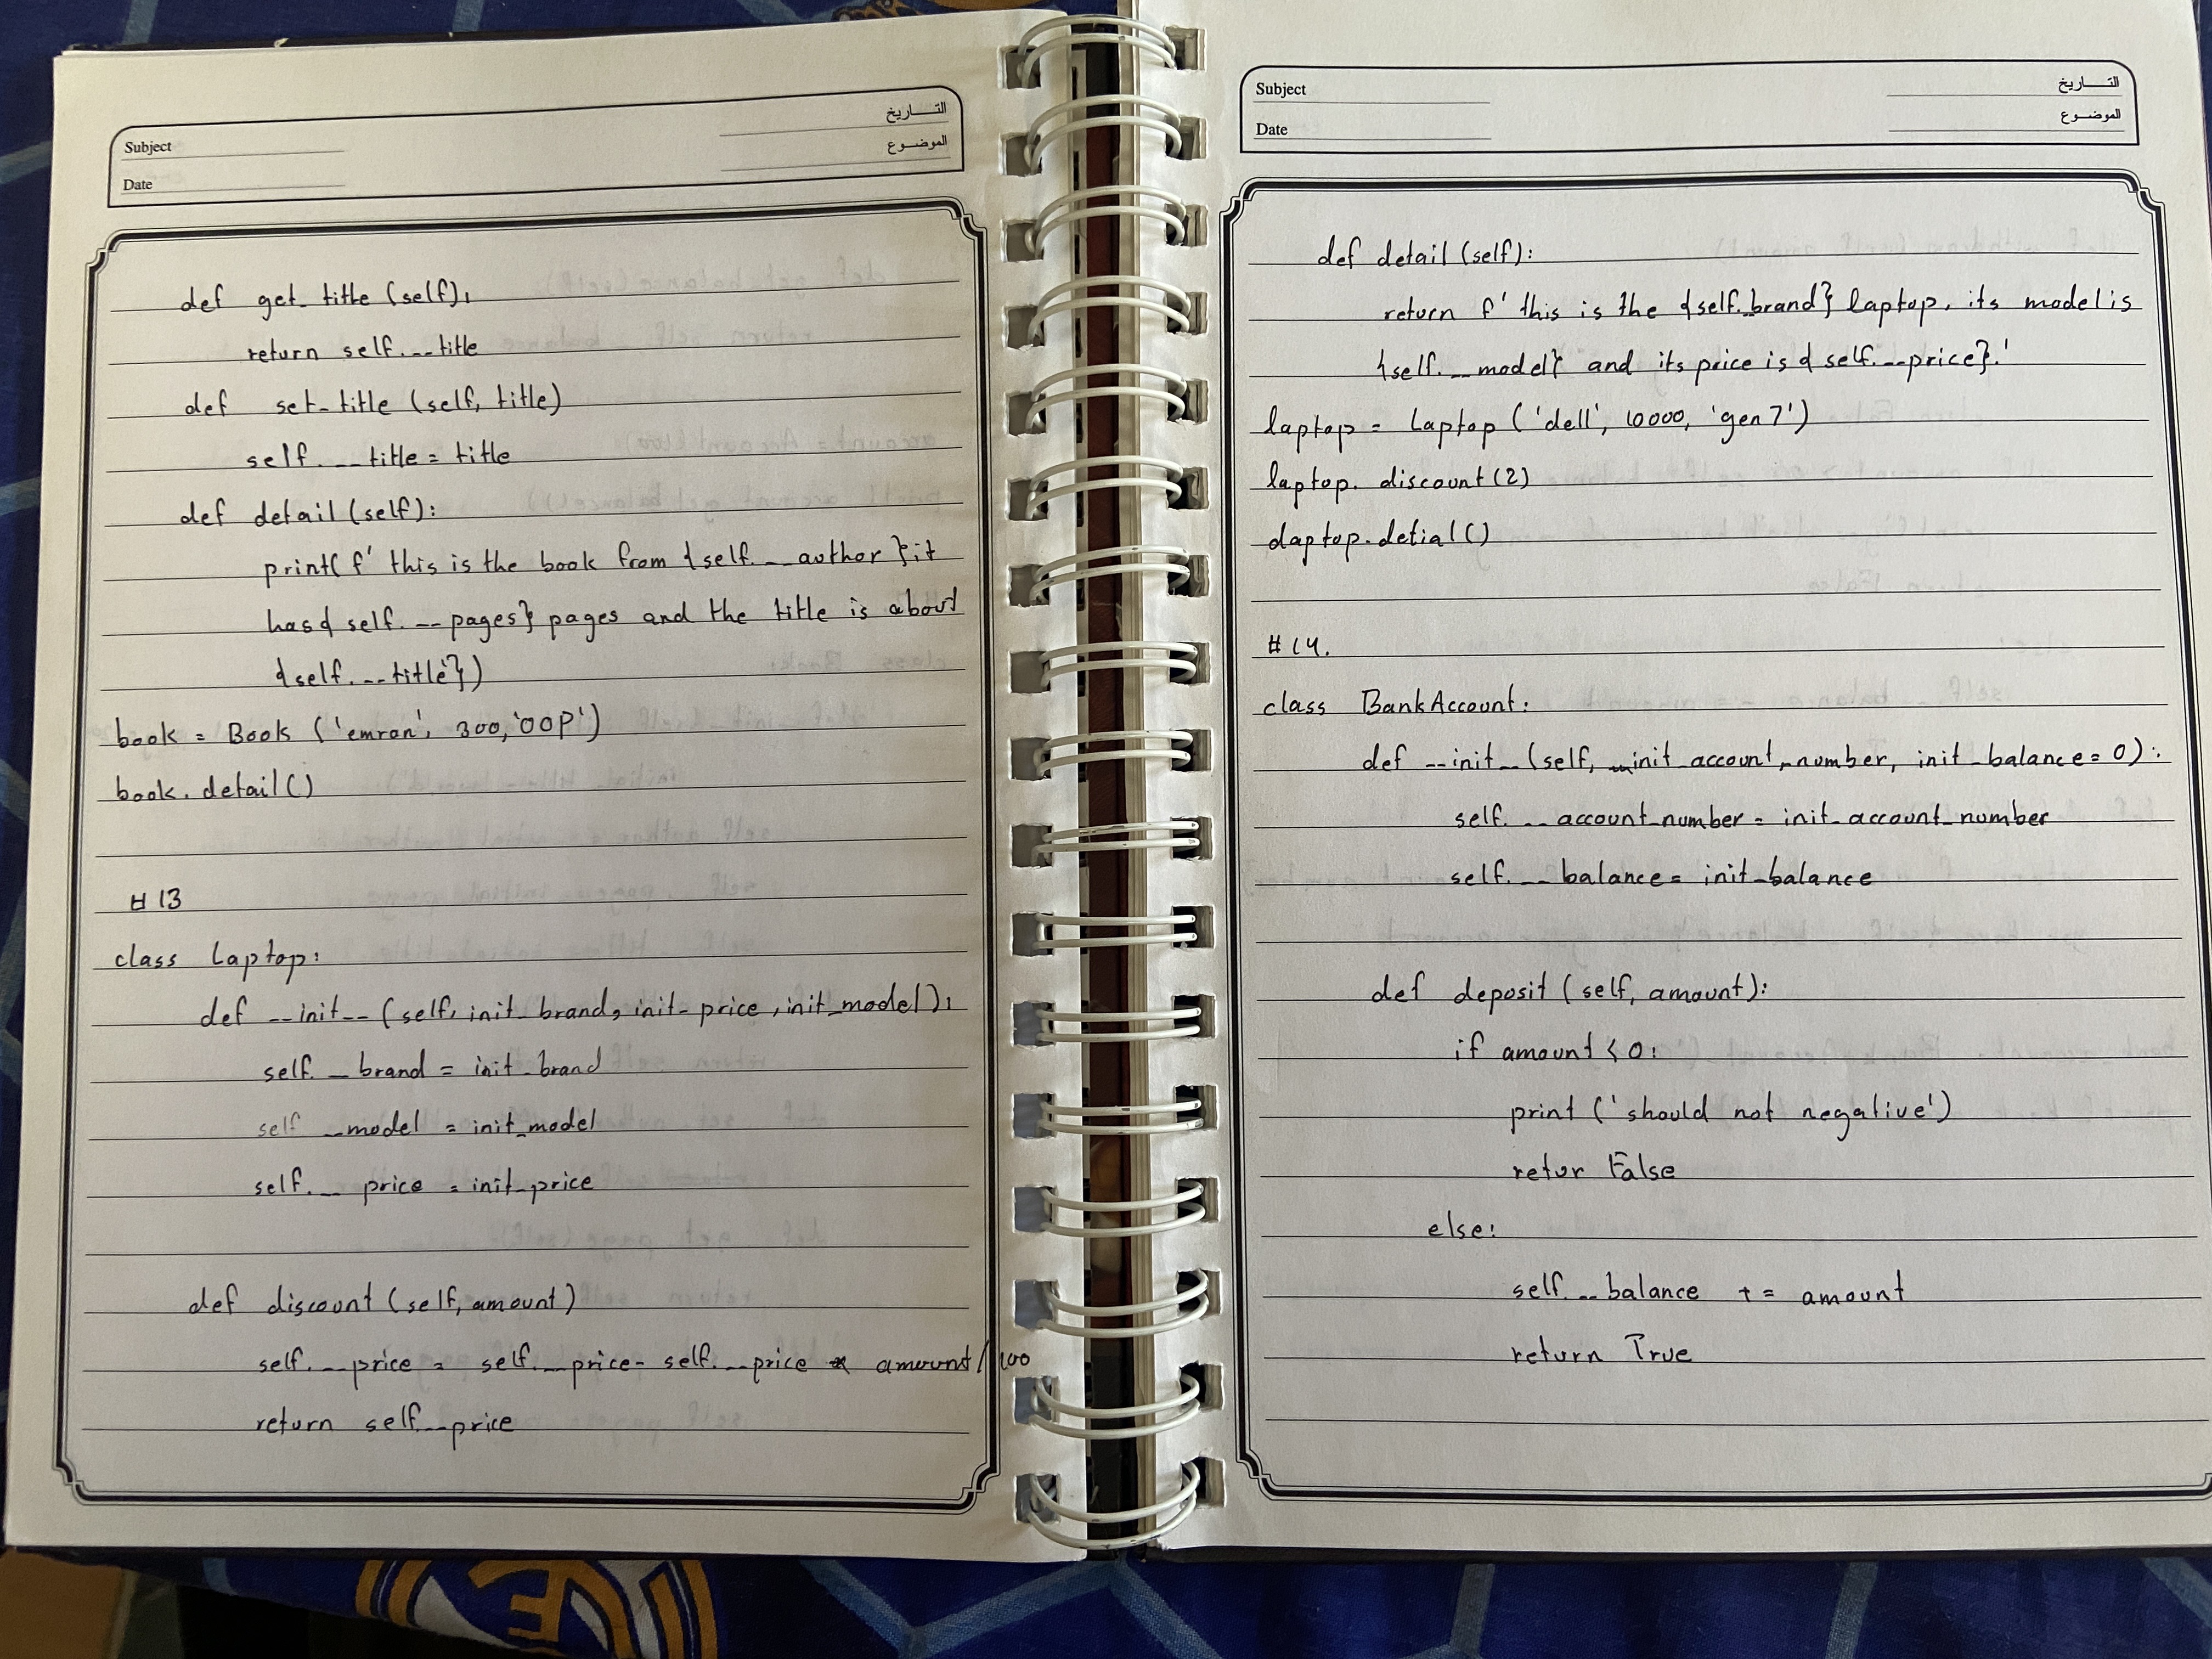 Subject
Date
التـــاريخ
الموضـــوع
def get_title (self):
return self.__title
def set_title (self, title)
self.__title = title
def detail (self):
print( f' this is the book from {self.__author} it
has{ self.__pages} pages and the title is about
{self.__title}')
book = Book ('emran', 300, 'OOP')
book.detail()
# 13
class Laptop:
def __init__ (self, init_brand, init_price, init_model):
self.__brand = init_brand
self.__model = init_model
self.__price = init_price
def discount (self, amount)
self.__price = self.__price - self.__price * amount/100
return self.__price
Subject
Date
التـــاريخ
الموضـــوع
def detail (self):
return f' this is the {self.__brand} laptop, its model is
{self.__model} and its price is {self.__price}.'
laptop = Laptop ('dell', 10000, 'gen7')
laptop. discount (2)
laptop.detial()
# 14.
class BankAccount:
def __init__ (self, init_account_number, init_balance = 0):
self.__account_number = init_account_number
self.__balance = init_balance
def deposit (self, amount):
if amount < 0:
print (' should not negative')
retur False
else:
self.__balance += amount
return True